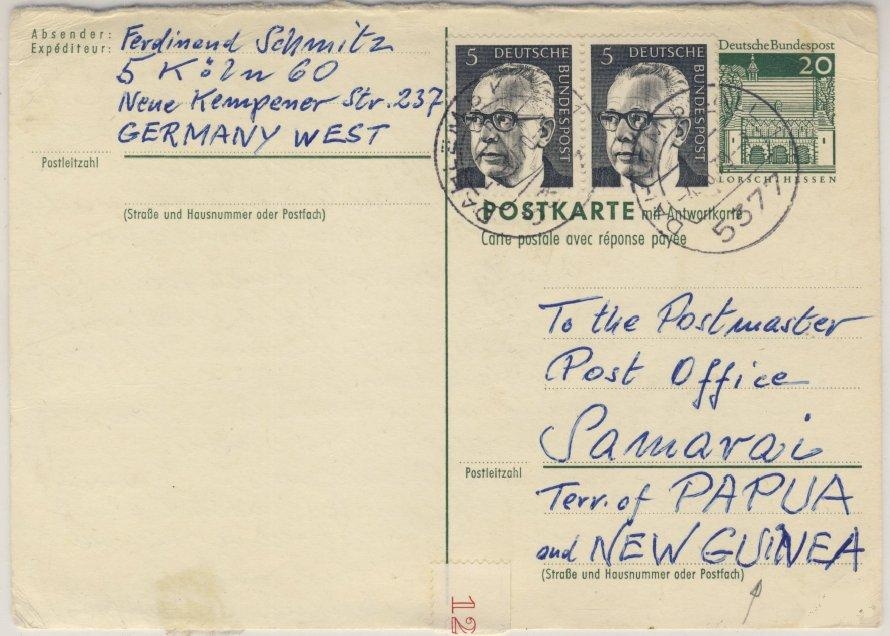 Absender:
Expéditeur:
Ferdinand Schmitz
5 Köln 60
Neue Kempener Str. 237
GERMANY WEST
Postleitzahl
(Straße und Hausnummer oder Postfach)
5 DEUTSCHE BUNDESPOST
5 DEUTSCHE BUNDESPOST
Deutsche Bundespost
20
LORSCH/HESSEN
5377
POSTKARTE mit Antwortkarte
Carte postale avec réponse payée
To the Postmaster
Post Office
Samarai
Postleitzahl
Terr. of PAPUA
and NEW GUINEA
(Straße und Hausnummer oder Postfach)
12